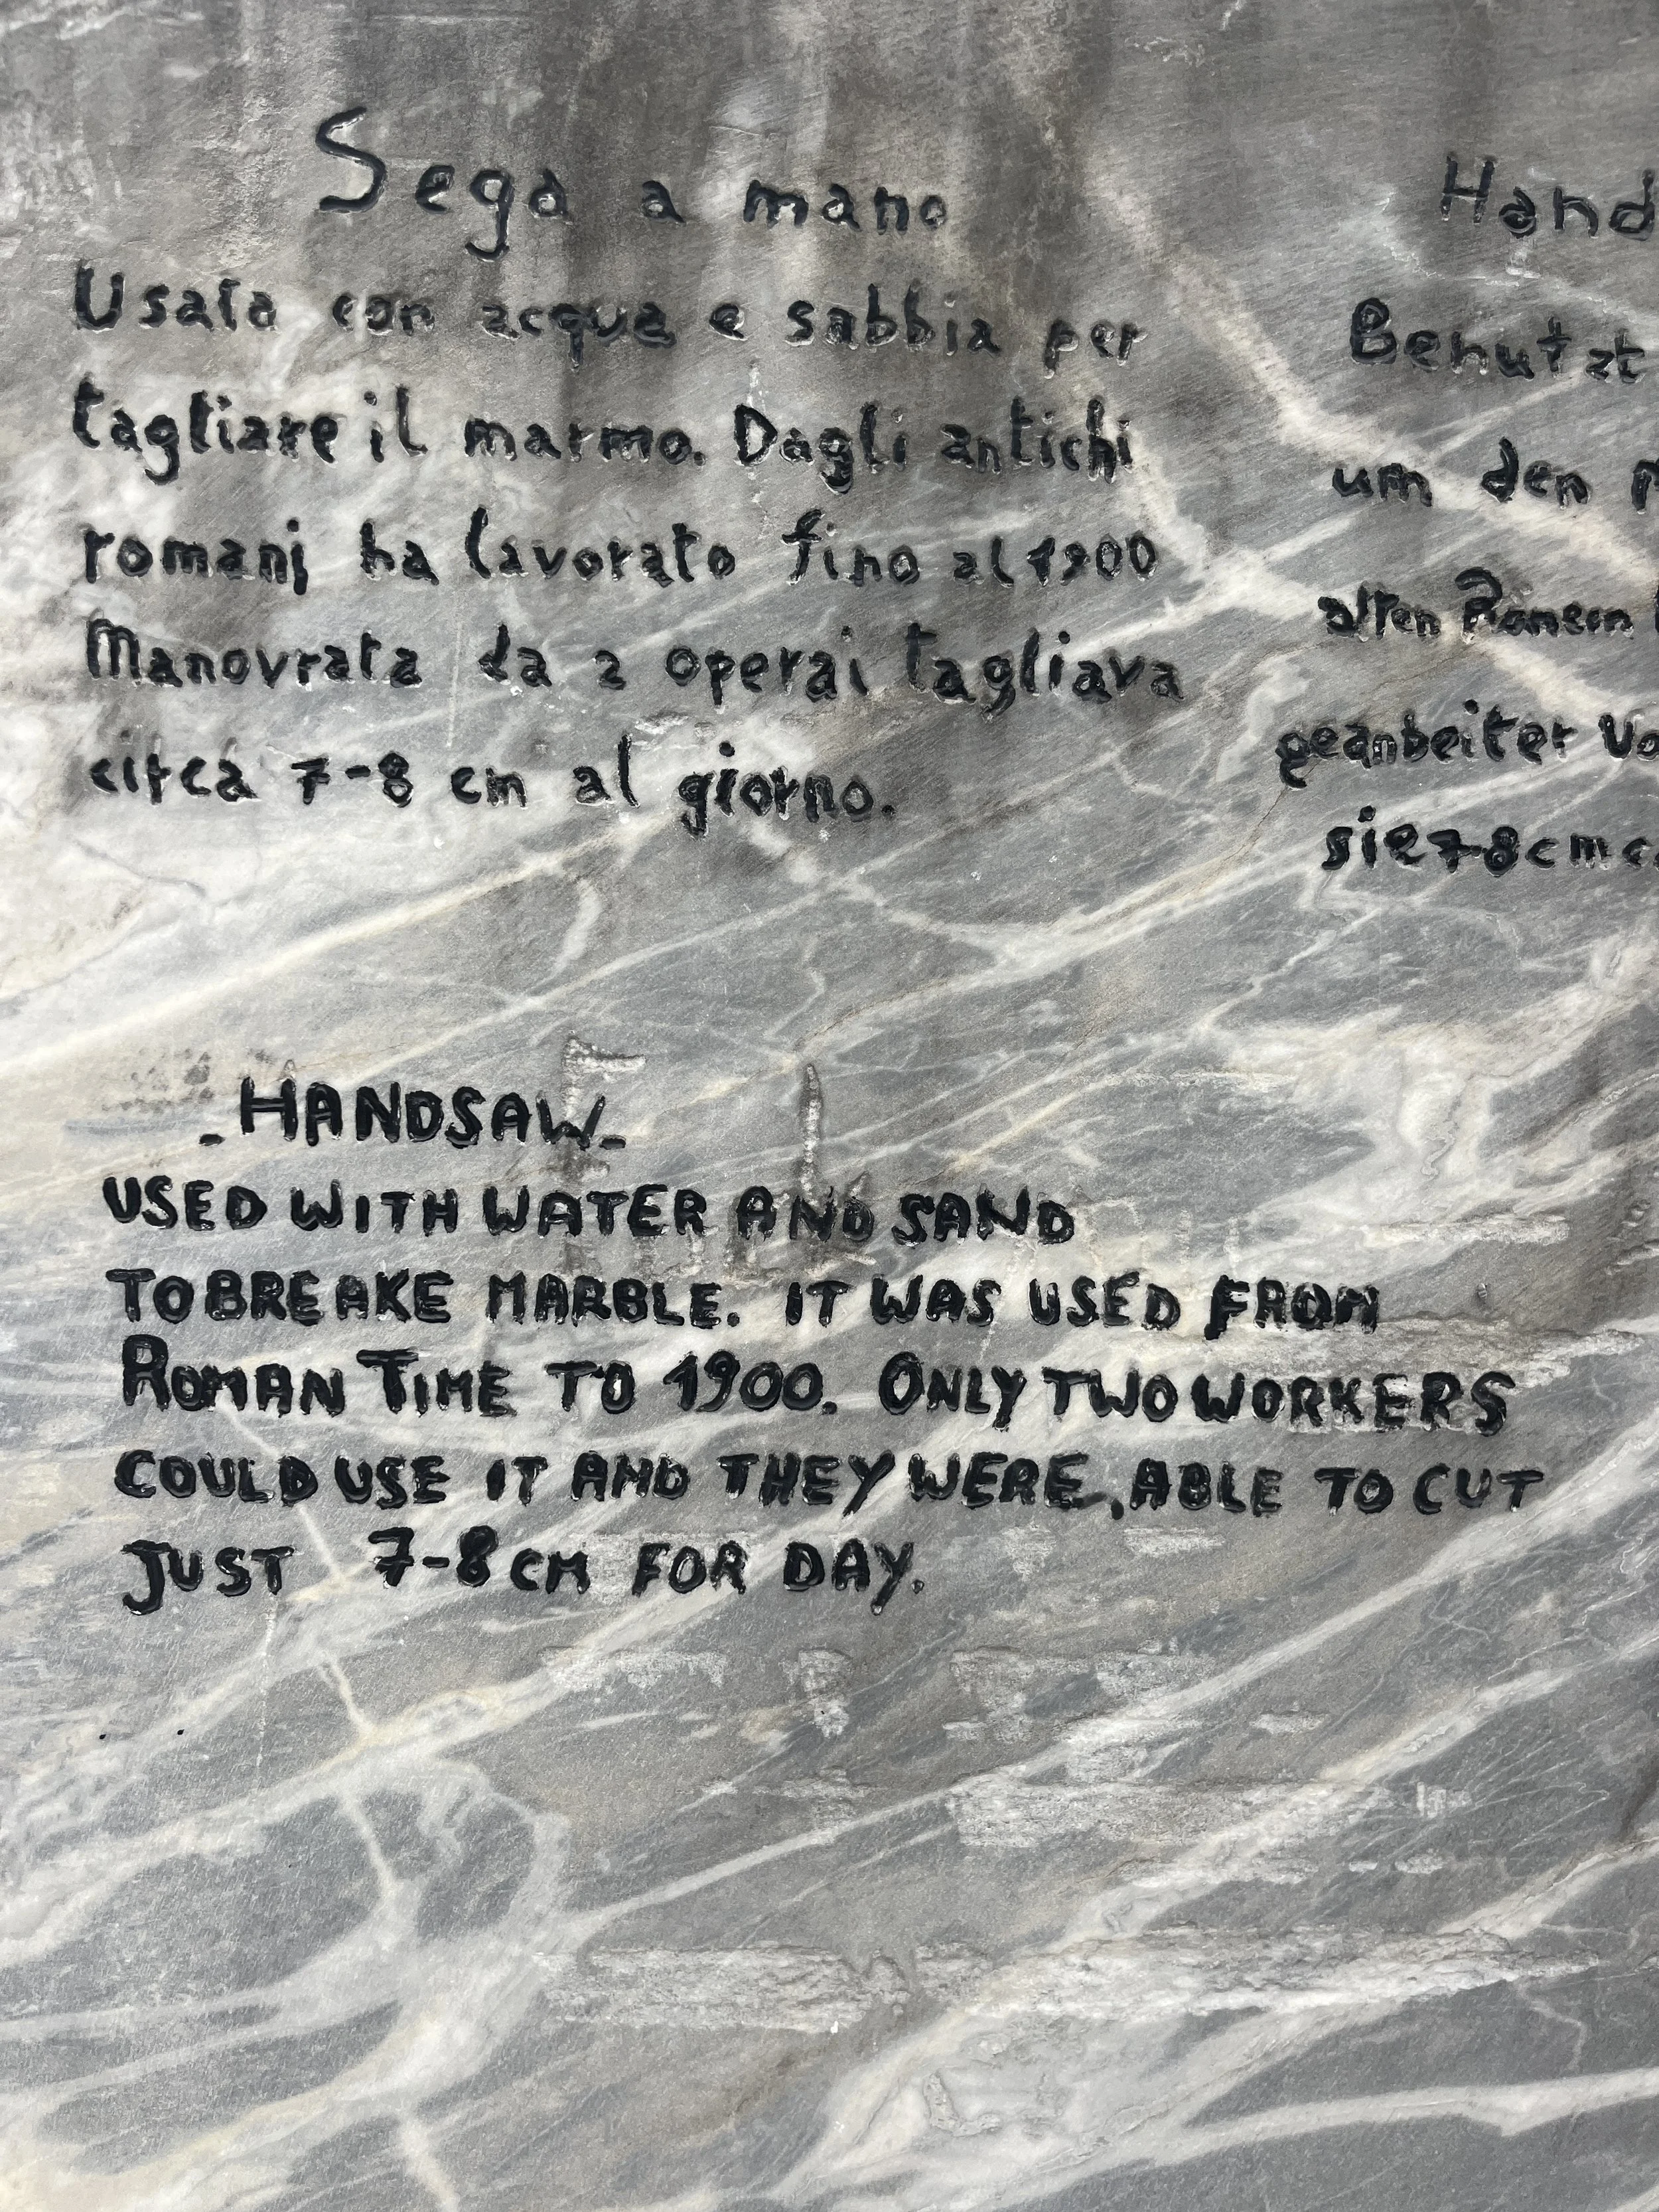 Sega a mano
Usata con acqua e sabbia per
tagliare il marmo. Dagli antichi
romani ha lavorato fino al 1900
Manovrata da 2 operai tagliava
circa 7-8 cm al giorno.
Hand
Benutzt
um den
alten Römern
geanbeiter Vo
sie 7-8 cm c
- HANDSAW -
USED WITH WATER AND SAND
TO BREAKE MARBLE. IT WAS USED FROM
ROMAN TIME TO 1900. ONLY TWO WORKERS
COULD USE IT AND THEY WERE, ABLE TO CUT
JUST 7-8 CM FOR DAY.